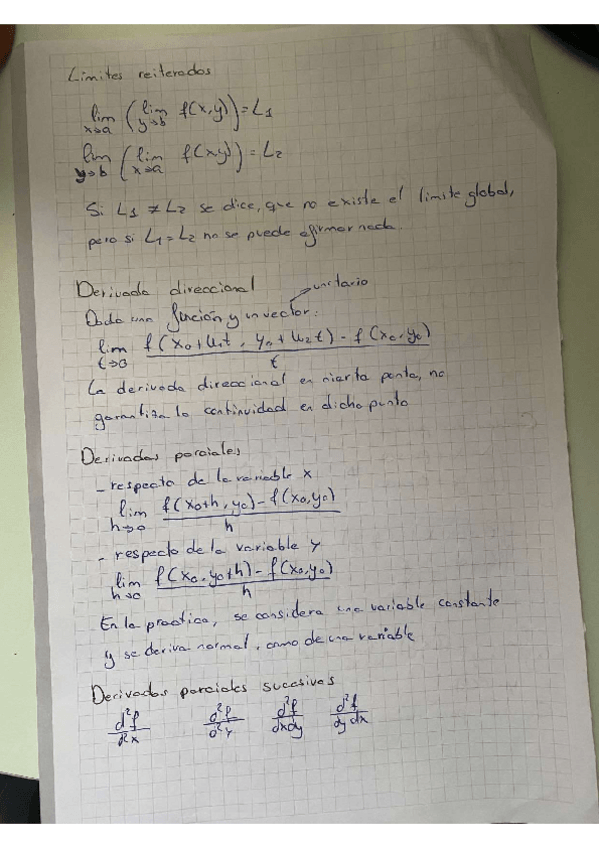 Limites reiterados
lim x→a (lim y→b f(x,y)) = L1
lim y→b (lim x→a f(xy)) = L2
Si L1 ≠ L2 se dice, que no existe el limite global,
pero si L1 = L2 no se puede afirmar nada.
Derivada direccional
unitario
Dada una función y un vector:
lim t→0 f(x0+u1t, y0+u2t) - f(x0,y0) / t
La derivada direccional en cierto punto, no
garantiza la continuidad en dicho punto
Derivadas parciales
- respecto de la variable x
lim h→0 f(x0+h, y0) - f(x0,y0) / h
- respecto de la variable y
lim h→0 f(x0, y0+h) - f(x0,y0) / h
En la practica, se considera una variable constante
y se deriva normal, como de una variable
Derivadas parciales sucesivas
d²f/d²x d²f/d²y d²f/dxdy d²f/dydx